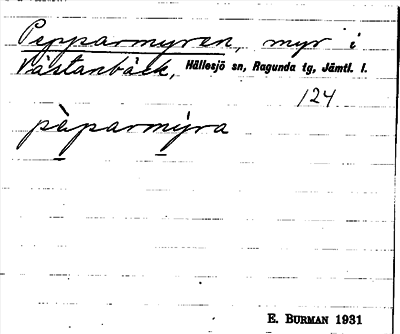 Pepparmyren, myr i
Västanbäck, Hällesjö sn, Ragunda tg, Jämtl. l.
124
pàparmýra
E. BURMAN 1931